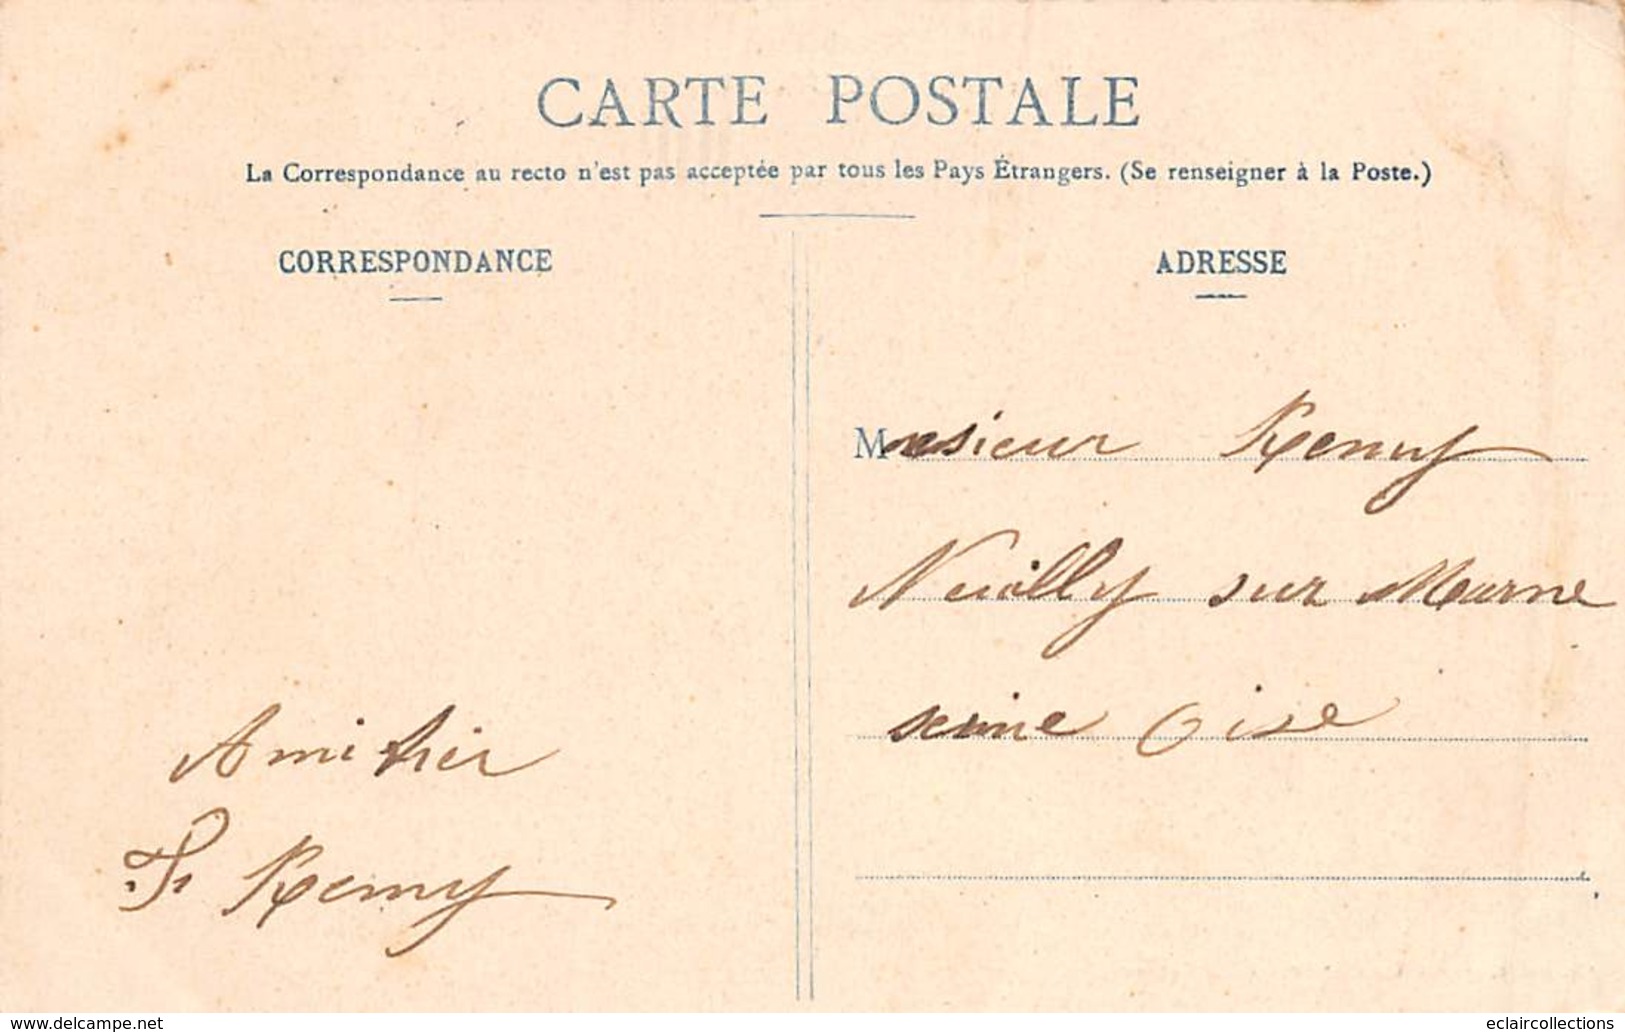 CARTE POSTALE
La Correspondance au recto n'est pas acceptée par tous les Pays Étrangers. (Se renseigner à la Poste.)
CORRESPONDANCE
Amitier
F. Remy
ADRESSE
Monsieur Remy
Neuilly sur Marne
seine Oise
www.delcampe.net
eclaircollections